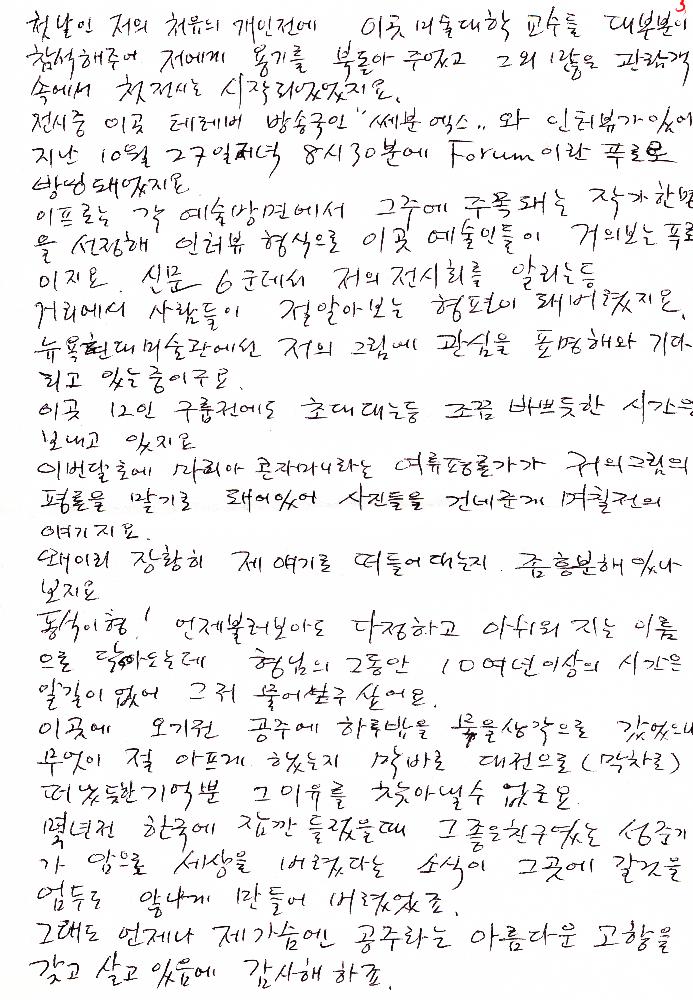 3
첫날인 저의 처음의 개인전에 이곳 미술대학 교수들 대부분이
참석해주어 저에게 용기를 북돋아 주었고 그외 많은 관람객
속에서 첫전시는 시작되었었지요.
전시중 이곳 테레비 방송국인 "쎄분 엑스" 와 인터뷰가 있어
지난 10월 27일저녁 8시30분에 Forum이란 프로로
방영돼었지요
이프로는 각 예술방면에서 그주에 주목돼는 작가한명
을 선정해 인터뷰 형식으로 이곳 예술인들이 거의보는 프로
이지요. 신문 6군데서 저의 전시회를 알리는등
거리에서 사람들이 절알아보는 형편이 돼버렸지요.
뉴욕현대미술관에선 저의 그림에 관심을 표명해와 기다
리고 있는중이구요.
이곳 12인 구룹전에도 초대대는등 조끔 바쁘듯한 시간을
보내고 있지요
이번달초에 마리아 콘자마니라는 여류평론가가 저의그림의
평론을 맡기로 돼어있어 사진들을 건네준게 며칠전의
얘기지요.
왜이리 장황히 제 얘기를 떠들어대는지. 좀흥분해 있나
보지요
동석이형! 언제불러보아도 다정하고 아쉬워 지는 이름
으로 닥아오는데 형님의 그동안 10여년이상의 시간은
알길이 없어 그저 물어보구 싶어요.
이곳에 오기전 공주에 하루밤을 묵을생각으로 갔었으나
무엇이 절 아프게 했는지 막바로 대전으로(막차로)
떠났듯한기억뿐 그이유를 찾아낼수 없군요.
몇년전 한국에 잠깐 들렸을때 그좋은친구였는 성준기
가 암으로 세상을 버렸다는 소식이 그곳에 갈것을
엄두도 않나게 만들어 버렸었죠.
그래도 언제나 제가슴에 공주라는 아름다운 고향을
갖고 살고 있음에 감사해 하죠.